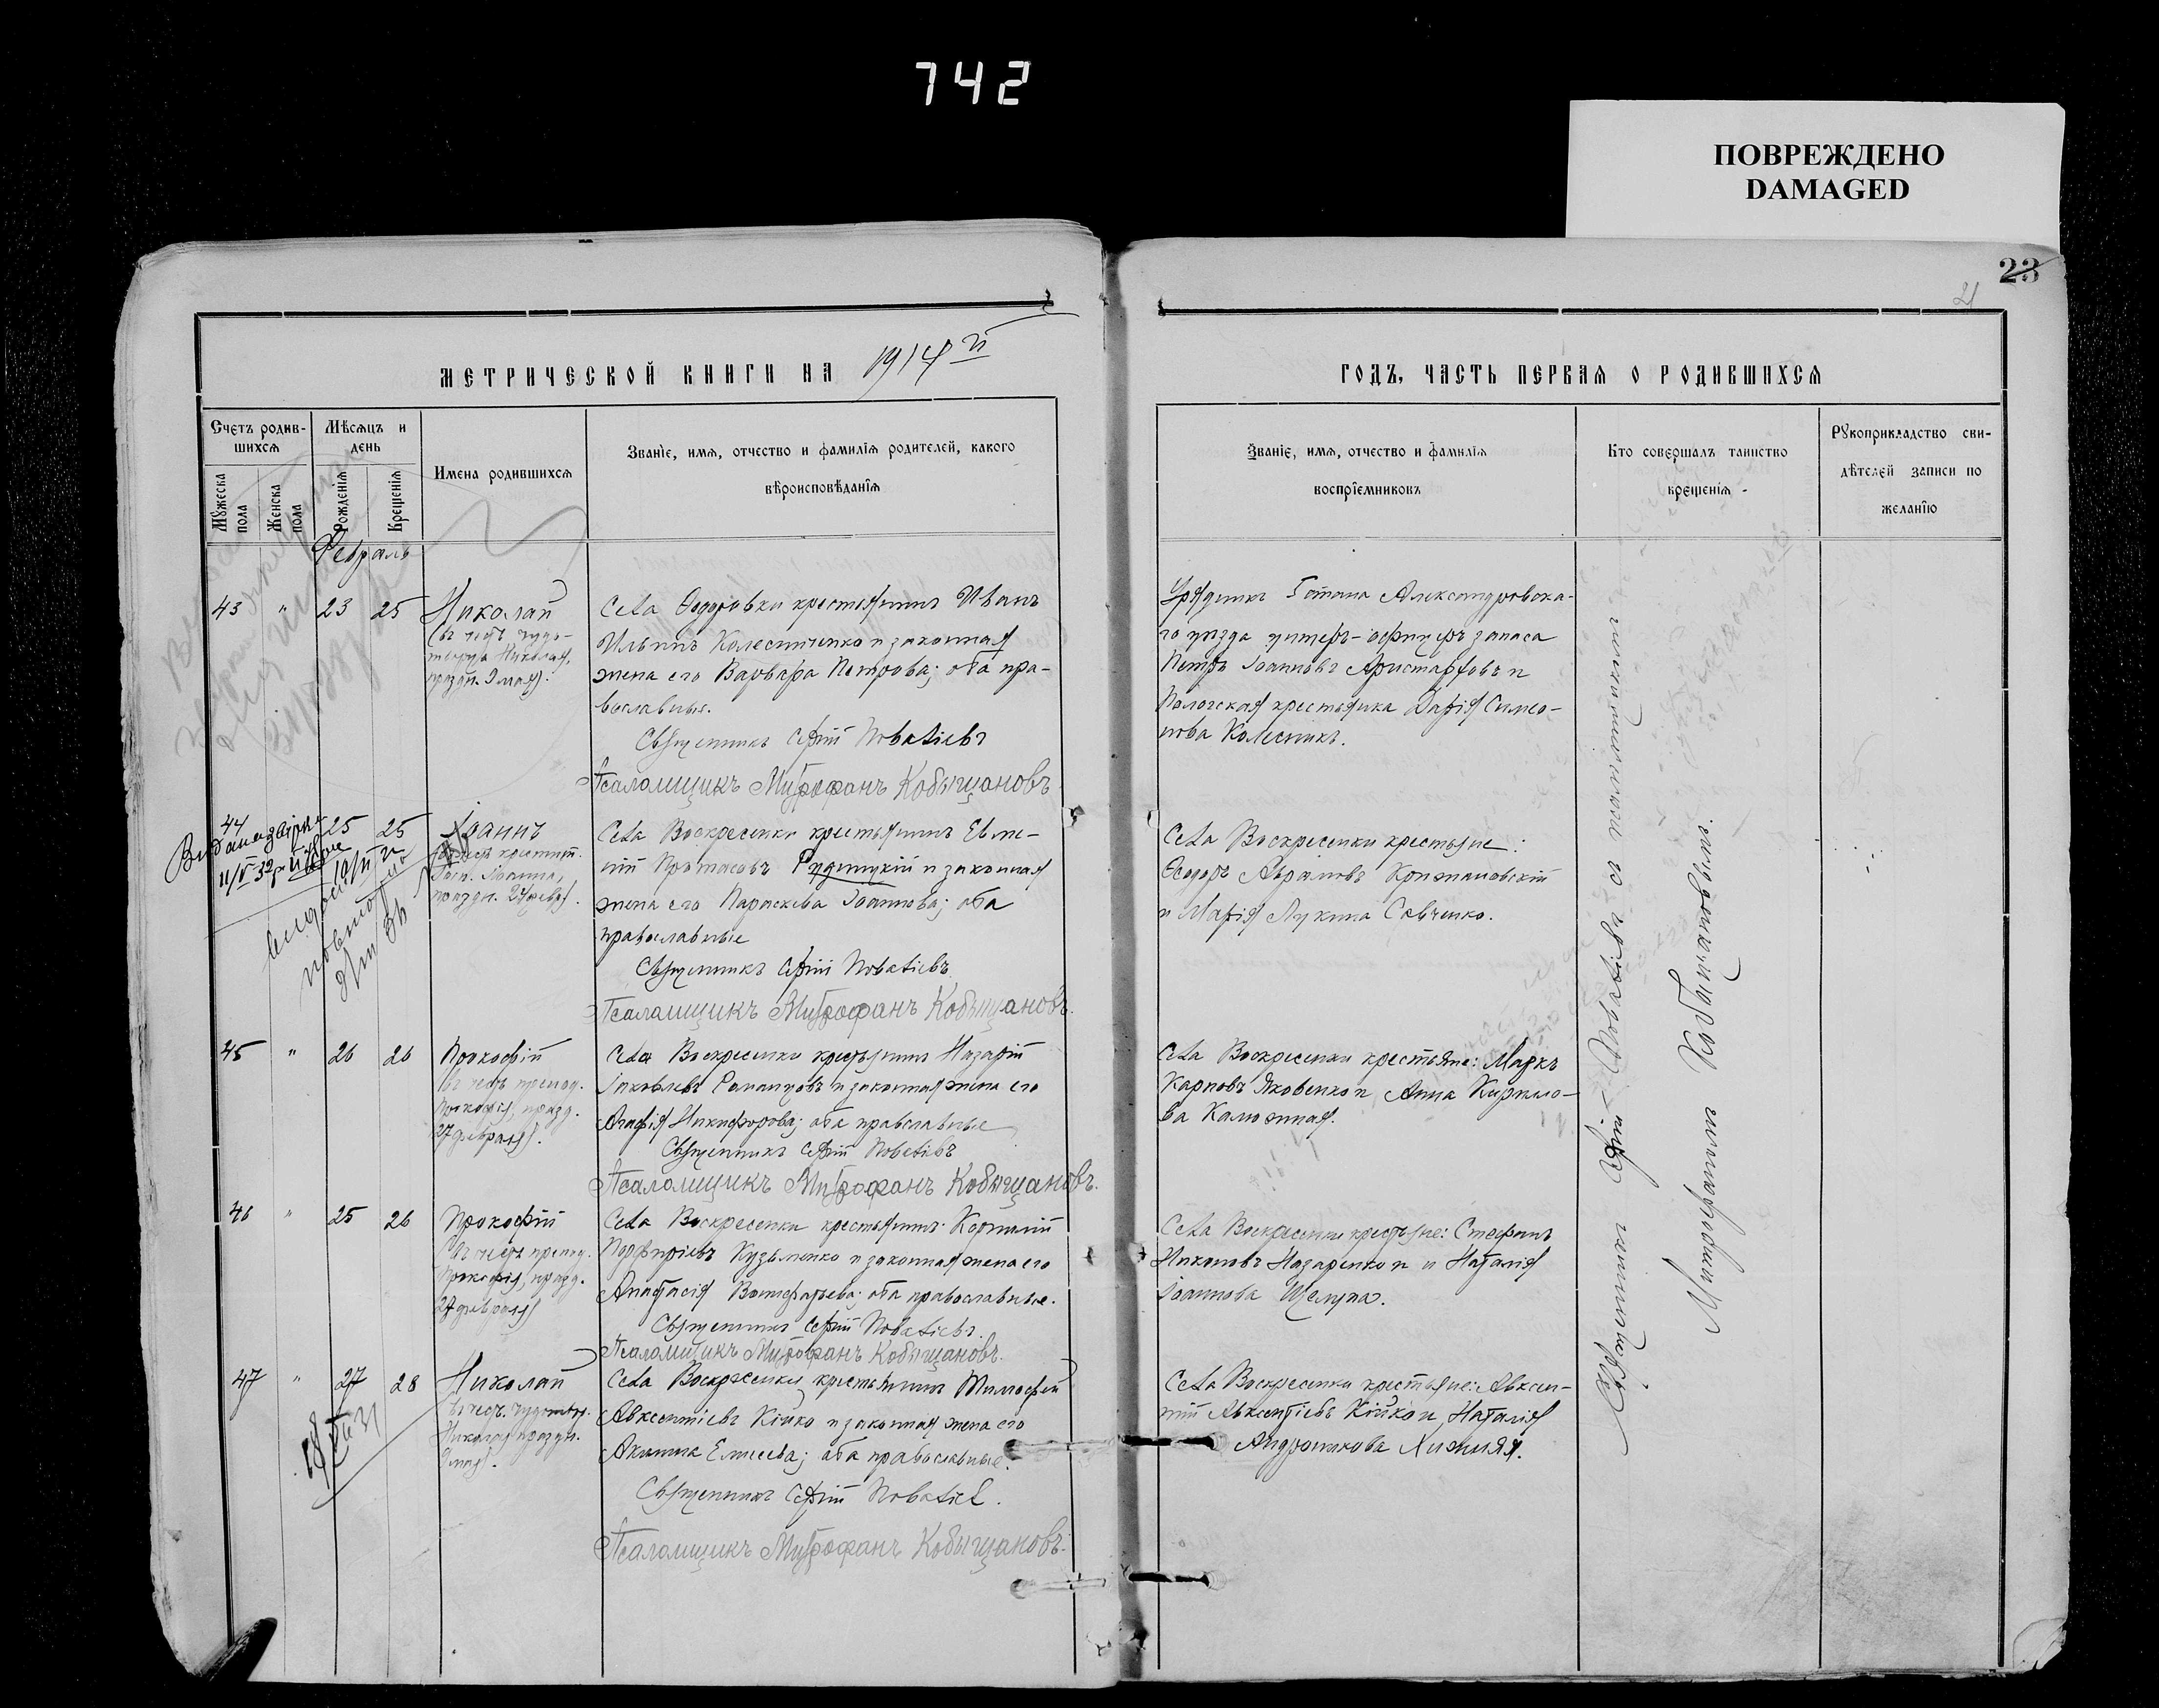 742
ПОВРЕЖДЕНО
DAMAGED
23
21
МЕТРИЧЕСКОЙ КНИГИ НА 1914й
Счетъ родив-
шихся
Мѣсяцъ и
день
Мужеска
пола
Женска
пола
Рожденія
Крещенія
Имена родившихся
Званіе, имя, отчество и фамилія родителей, какого
вѣроисповѣданія
Февраль
43 " 23 25 Николай
(въ честь чудо-
творца Николая,
праздн. 9 мая).
Села Ѳедоровки крестьянинъ Иванъ
Ильинъ Колесниченко и законная
жена его Варвара Петрова; оба пра-
вославные.
Священникъ Сергій
Псаломщикъ Митрофанъ Кобыщановъ
44 25 25 Іоаннъ
въ честь крестит.
Госп. Іоанна,
праздн. 24 февр.
Села Воскресенки крестьянинъ Евме-
ній Протасовъ Рудницкій и законная
жена его Параскева Іоаннова; оба
православные
Священникъ Сергій
Псаломщикъ Митрофанъ Кобыщановъ.
45 " 26 26 Прокофій
въ честь препод.
Прокофія, празд.
27 февраля).
Села Воскресенки крестьянинъ Назарій
Іаковлевъ Романцовъ и законная жена его
Агафія Никифорова; оба православные
Священникъ Сергій
Псаломщикъ Митрофанъ Кобыщановъ.
46 " 25 26 Прокофій
(въ честь препод.
Прокофія, празд.
27 февраля)
Села Воскресенки крестьянинъ Корнилій
Порфиріевъ Кузьменко и законная жена его
Анастасія Вонифатьева; оба православные.
Священникъ Сергій
Псаломщикъ Митрофанъ Кобыщановъ.
47 " 27 28 Николай
въ честь чудотвор.
Николая праздн.
9 мая).
Села Воскресенки крестьянинъ Тимофей
Авксентіевъ Кійко и законная жена его
Акилина Елисеева; оба православные.
Священникъ Сергій
Псаломщикъ Митрофанъ Кобыщановъ.
ГОДЪ, ЧАСТЬ ПЕРВАЯ О РОДИВШИХСЯ
Званіе, имя, отчество и фамилія
воспріемниковъ
Кто совершалъ таинство
крещенія
Рукоприкладство сви-
дѣтелей записи по
желанію
Урядникъ 5 стана Александровска-
го уѣзда унтеръ-офицеръ запаса
Петръ Іоанновъ Аристарховъ и
Пологская крестьянка Дарія Симео-
нова Колесникъ.
Села Воскресенки крестьяне:
Ѳеодоръ Аврамовъ Крижановскій
и Марія Лукина Савченко.
Села Воскресенки крестьяне: Маркъ
Карповъ Яковенко и Анна Кирило-
ва Калюжная.
Села Воскресенки крестьяне: Стефанъ
Никоновъ Назаренко и Наталія
Іоаннова Шелупа.
Села Воскресенки крестьяне: Авксен-
тій Авксентіевъ Кійко и Наталія
Андроникова Хижняя.
Священникъ Сергій съ псаломщикомъ
Митрофаномъ Кобыщановымъ.